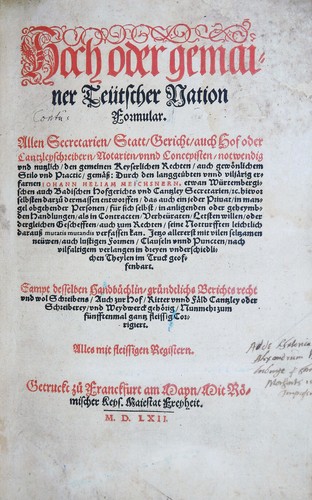 Hoch oder gemai-
ner Teütscher Nation
Formular.
Allen Secretarien / Statt / Gericht / auch Hof oder
Cantzleyschreibern / Notarien / vnnd Concepisten / notwendig
vnd nutzlich / den gemeinen Keyserlichen Rechten / auch gewönlichem
Stilo vnd Practic / gemäß: Durch den langgeübten vnnd viljärig er-
farnen IOHANN HELIAM MEICHSNERN, etwan Würtembergi-
schen auch Badischen Hofgerichts vnd Cantzley Secretarien / ec. hieuor
selbsten darzů dermassen entworffen / das auch ein jeder Priuat / in man-
gel obgehender Personen / für sich selbst / in anligenden oder geheymb-
den Handlungen / als in Contracten / Verheüraten / Letsten willen / oder der-
gleichen Geschefften / auch zum Rechten / sein Notturfften leichtlich
darauß mutatis mutandis verfassen kan. Jetzo allererst mit vilen seltzamen
neüwen / auch lustigen Formen / Clauseln vnnd Puncten / nach
vilfaltigem verlangen in dreyen vnderschiedli-
chen Theylen im Truck geof-
fenbart.
Sampt desselben Handbüchlin / gründtlichs Berichts recht
vnd wol Schreibens / Auch zur Hof / Ritter vnnd Fäld Cantzley oder
Schreiberey / vnd Weydwerck gehörig / Nunmehr zum
fünfftenmal gantz fleissig Cor-
rigiert.
Alles mit fleissigen Registern.
Getruckt zů Franckfurt am Mayn / Mit Rö-
mischer Keys. Maiestat Freyheit.
M. D. LXII.